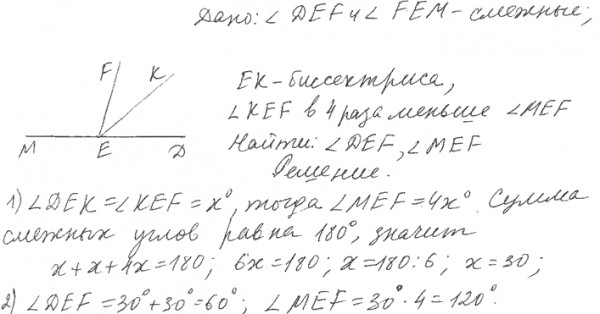 Дано: ∠ DEF и ∠ FEM - смежные;
F K
M E D
EK - биссектриса,
∠KEF в 4 раза меньше ∠MEF
Найти: ∠DEF, ∠MEF
Решение.
1) ∠DEK = ∠KEF = x°, тогда ∠MEF = 4x°. Сумма
смежных углов равна 180°, значит
x + x + 4x = 180; 6x = 180; x = 180 : 6; x = 30;
2) ∠DEF = 30° + 30° = 60°; ∠MEF = 30° · 4 = 120°.